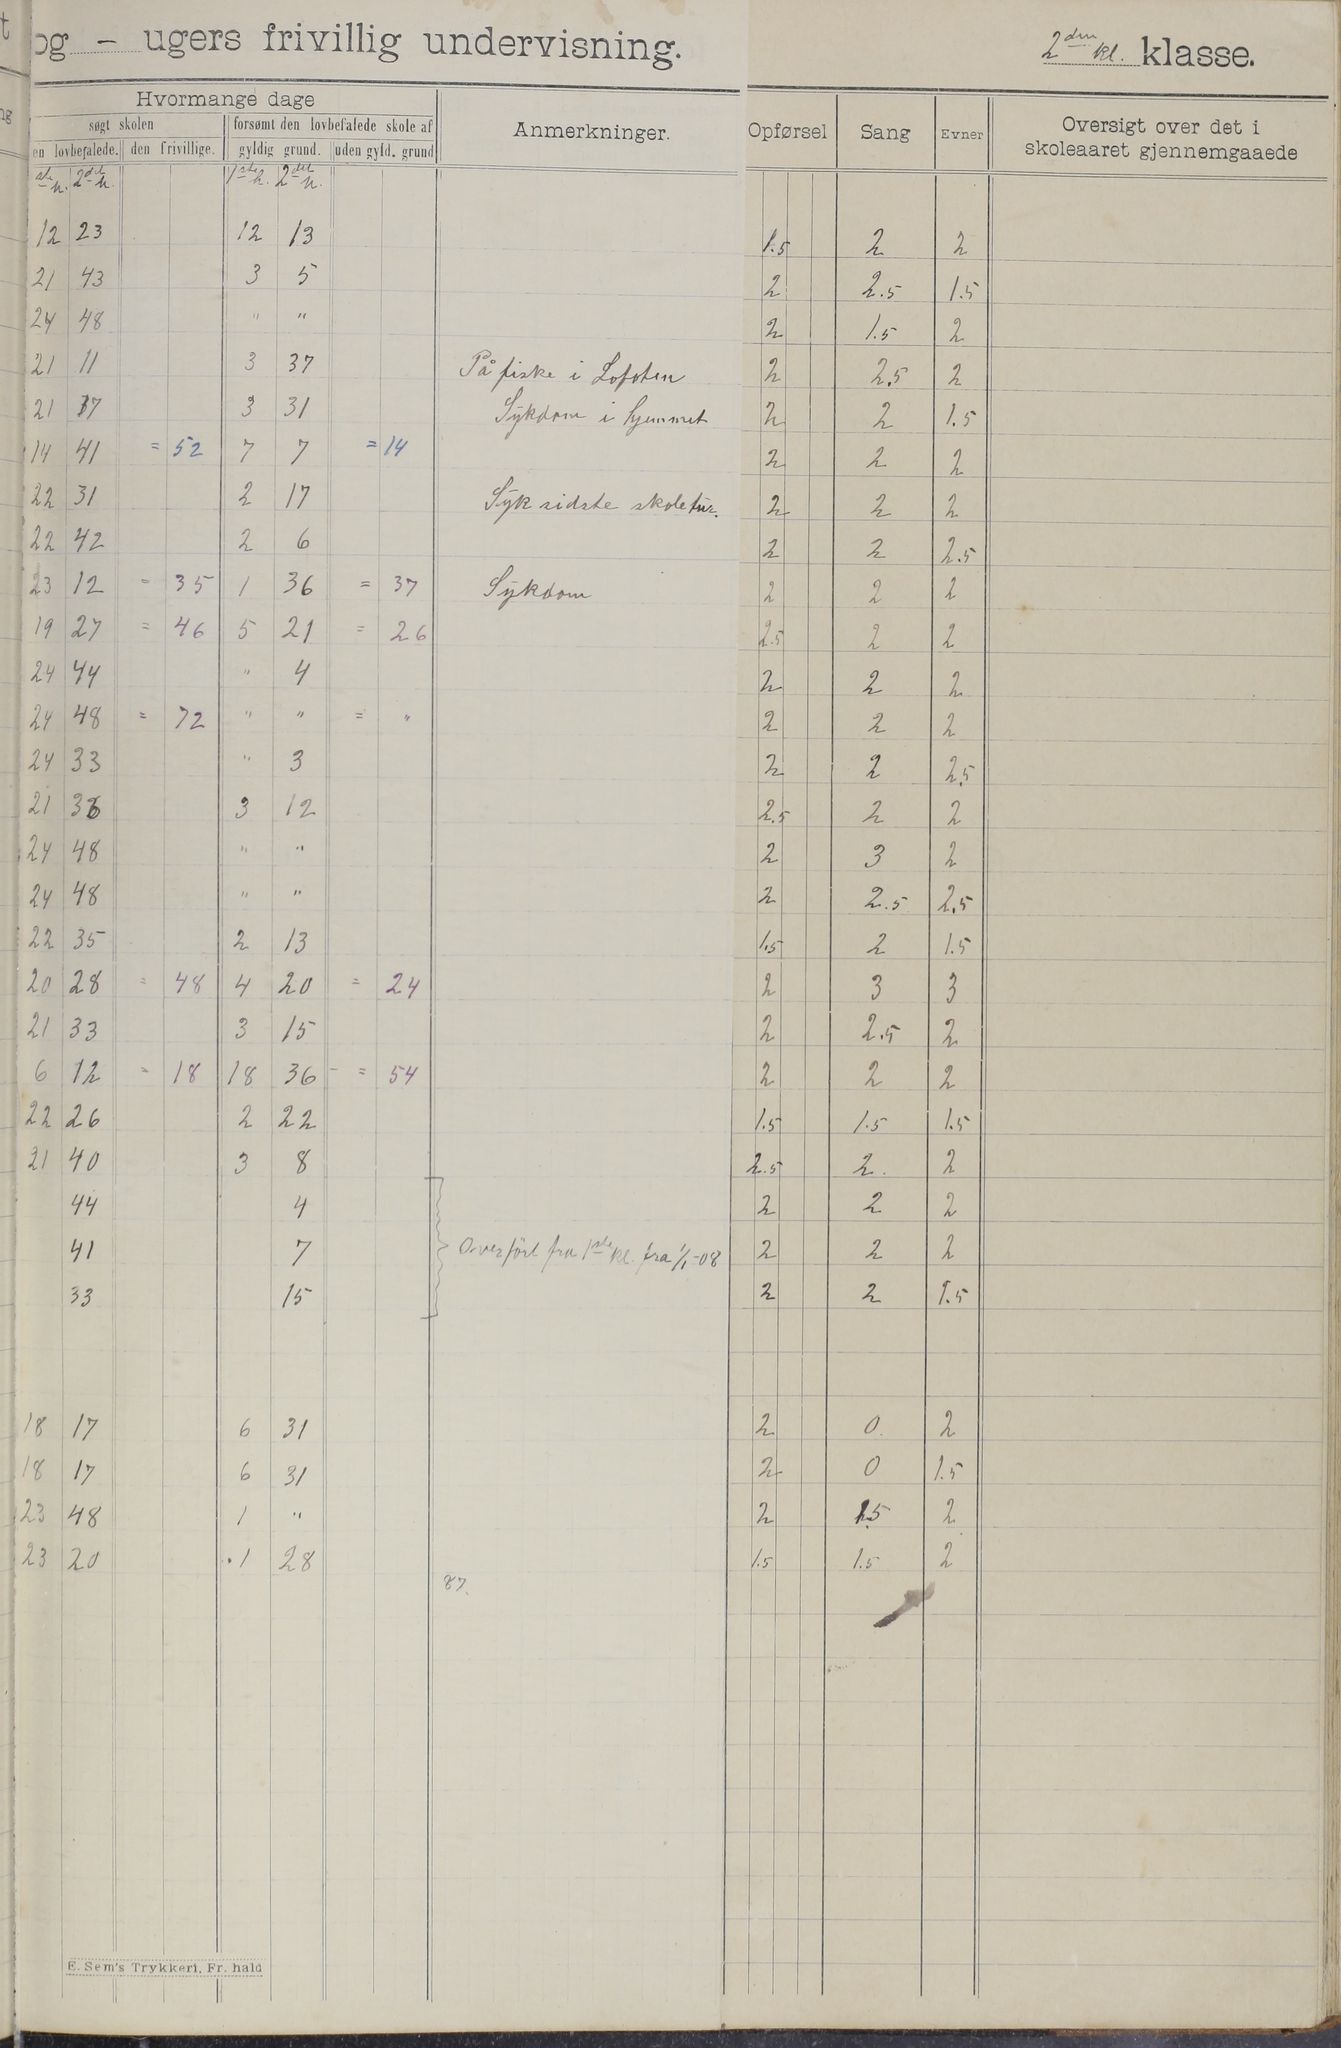 og - ugers frivillig undervisning. 2den kl. klasse.
Hvormange dage
søgt skolen forsømt den lovbefalede skole af Anmerkninger. Opførsel Sang Evner Oversigt over det i skoleaaret gjennemgaaede
en lovbefalede. den frivillige. gyldig grund. uden gyld. grund
ste h. 2det h. 1ste h. 2det h.
12 23 12 13 1.5 2 2
21 43 3 5 2 2.5 1.5
24 48 " " 2 1.5 2
21 11 3 37 På fiske i Lofoten 2 2.5 2
21 17 3 31 Sykdom i hjemmet 2 2 1.5
14 41 = 52 7 7 = 14 2 2 2
22 31 2 17 Syk sidste skoletur. 2 2 2
22 42 2 6 2 2 2.5
23 12 = 35 1 36 = 37 Sykdom 2 2 2
19 27 = 46 5 21 = 26 2.5 2 2
24 44 " 4 2 2 2
24 48 = 72 " " = " 2 2 2
24 33 " 3 2 2 2.5
21 36 3 12 2.5 2 2
24 48 " " 2 3 2
24 48 " " 2 2.5 2.5
22 35 2 13 1.5 2 1.5
20 28 = 48 4 20 = 24 2 3 3
21 33 3 15 2 2.5 2
6 12 = 18 18 36 = 54 2 2 2
22 26 2 22 1.5 1.5 1.5
21 40 3 8 2.5 2. 2
44 4 2 2 2
41 7 Overført fra 1ste kl. fra 1/1-08 2 2 2
33 15 2 2 1.5
18 17 6 31 2 0. 2
18 17 6 31 2 0 1.5
23 48 1 " 2 1.5 2
23 20 .1 28 1.5 1.5 2
87.
E. Sem's Trykkeri, Fr. hald